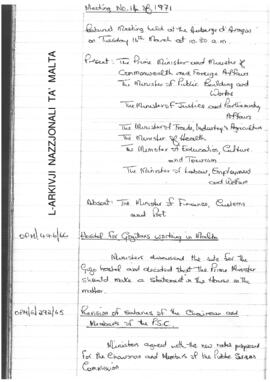 Meeting No. 14 of 1971
Cabinet Meeting held at the Auberge d'Aragon
on Tuesday 16th March at 10.30 a.m.
Present: The Prime Minister and Minister of
Commonwealth and Foreign Affairs
The Minister of Public Building and
Works
The Minister of Justice and Parliamentary
Affairs
The Minister of Trade, Industry & Agriculture
The Minister of Health
The Minister of Education, Culture
and Tourism
The Minister of Labour, Employment
and Welfare
Absent: The Minister of Finance, Customs
and Port
Hostel for Gozitans working in Malta
Ministers discussed the site for the
Gozo hostel and decided that the Prime Minister
should make a statement in the House on the
matter.
OPM/G/292/65
Revision of salaries of the Chairman and
Members of the P.S.C.
Ministers agreed with the new rates proposed
for the Chairman and Members of the Public Service
Commission
L-ARKIVJI NAZZJONALI TA' MALTA